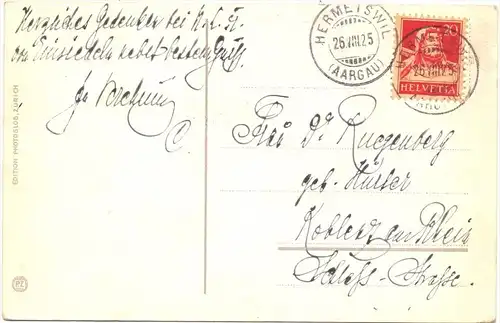 Herzliches Gedenken bei
Einsiedeln nebst besten Grüßen.
C.
HERMETSWIL
26.VIII.25
(AARGAU)
20
HELVETIA
26.VIII.25
Frau Dr. Ruegenberg
geb. Hüser
Koblenz am Rhein
Schloss-Strasse.
EDITION PHOTOGLOB, ZÜRICH
PZ